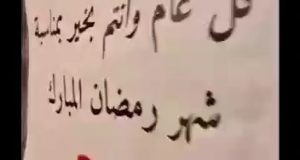 كل عام وانتم بخير بمناسبة
شهر رمضان المبارك